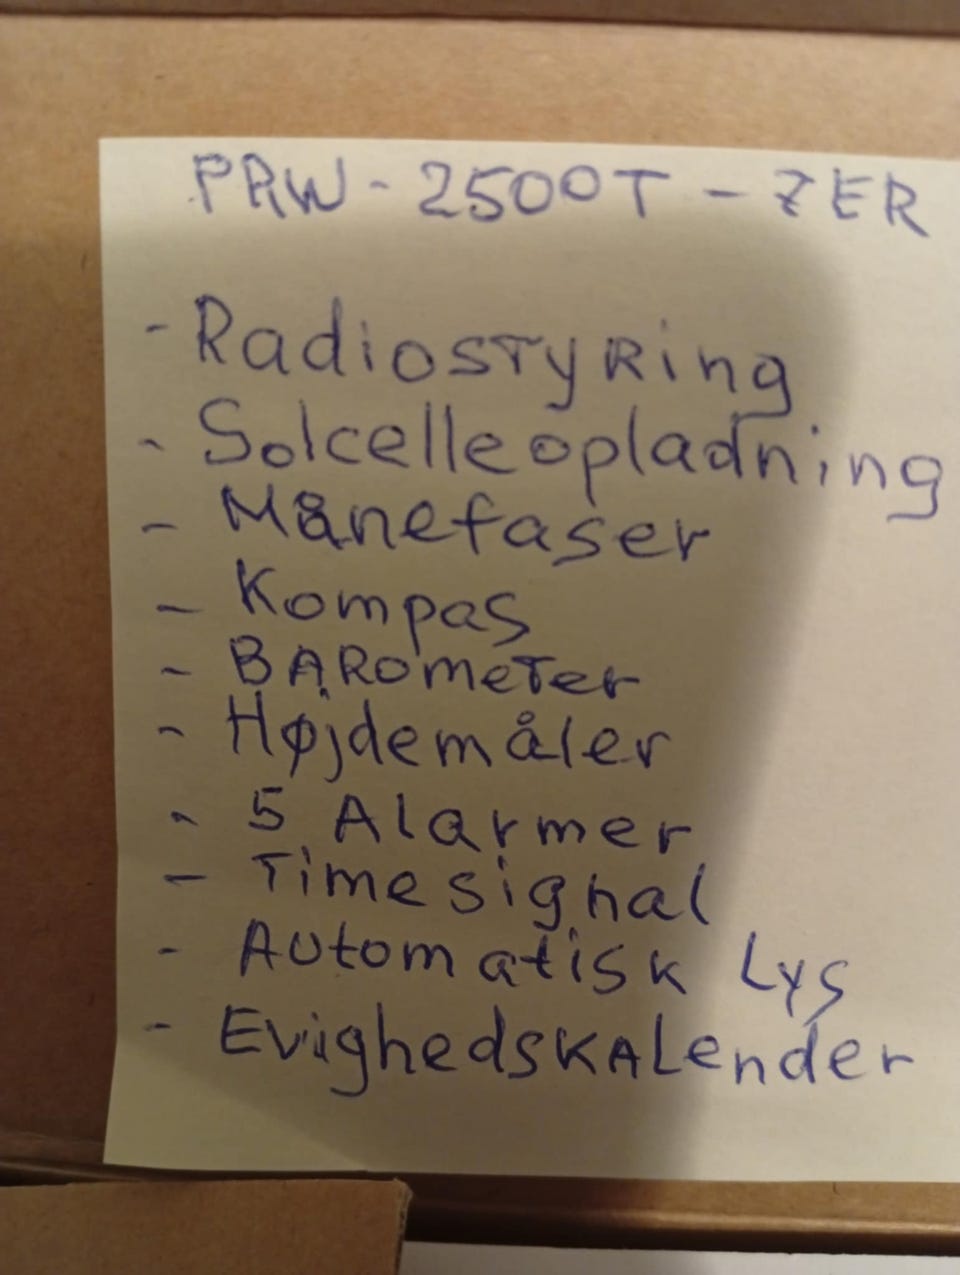 PRW-2500T-7ER
- Radiostyring
- Solcelleopladning
- Månefaser
- Kompas
- BAROmeter
- Højdemåler
- 5 Alarmer
- Timesignal
- Automatisk Lys
- Evighedskalender